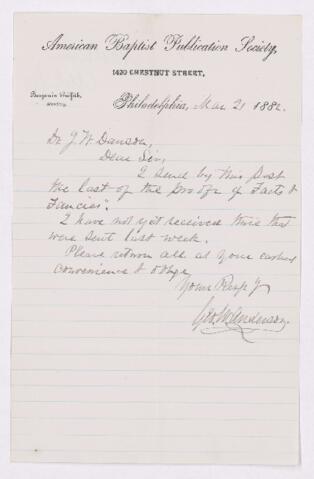 American Baptist Publication Society,
1420 CHESTNUT STREET,
Benjamin Griffith,
Philadelphia, Mar 21 1882.
Dr J. W. Dawson,
Dear Sir,
I send by this post
the last of the proofs of "Facts &
Fancies".
I have not yet received those that
were sent last week.
Please return all at your earliest
convenience & oblige
Yours Resp'y
Geo. W. Anderson.